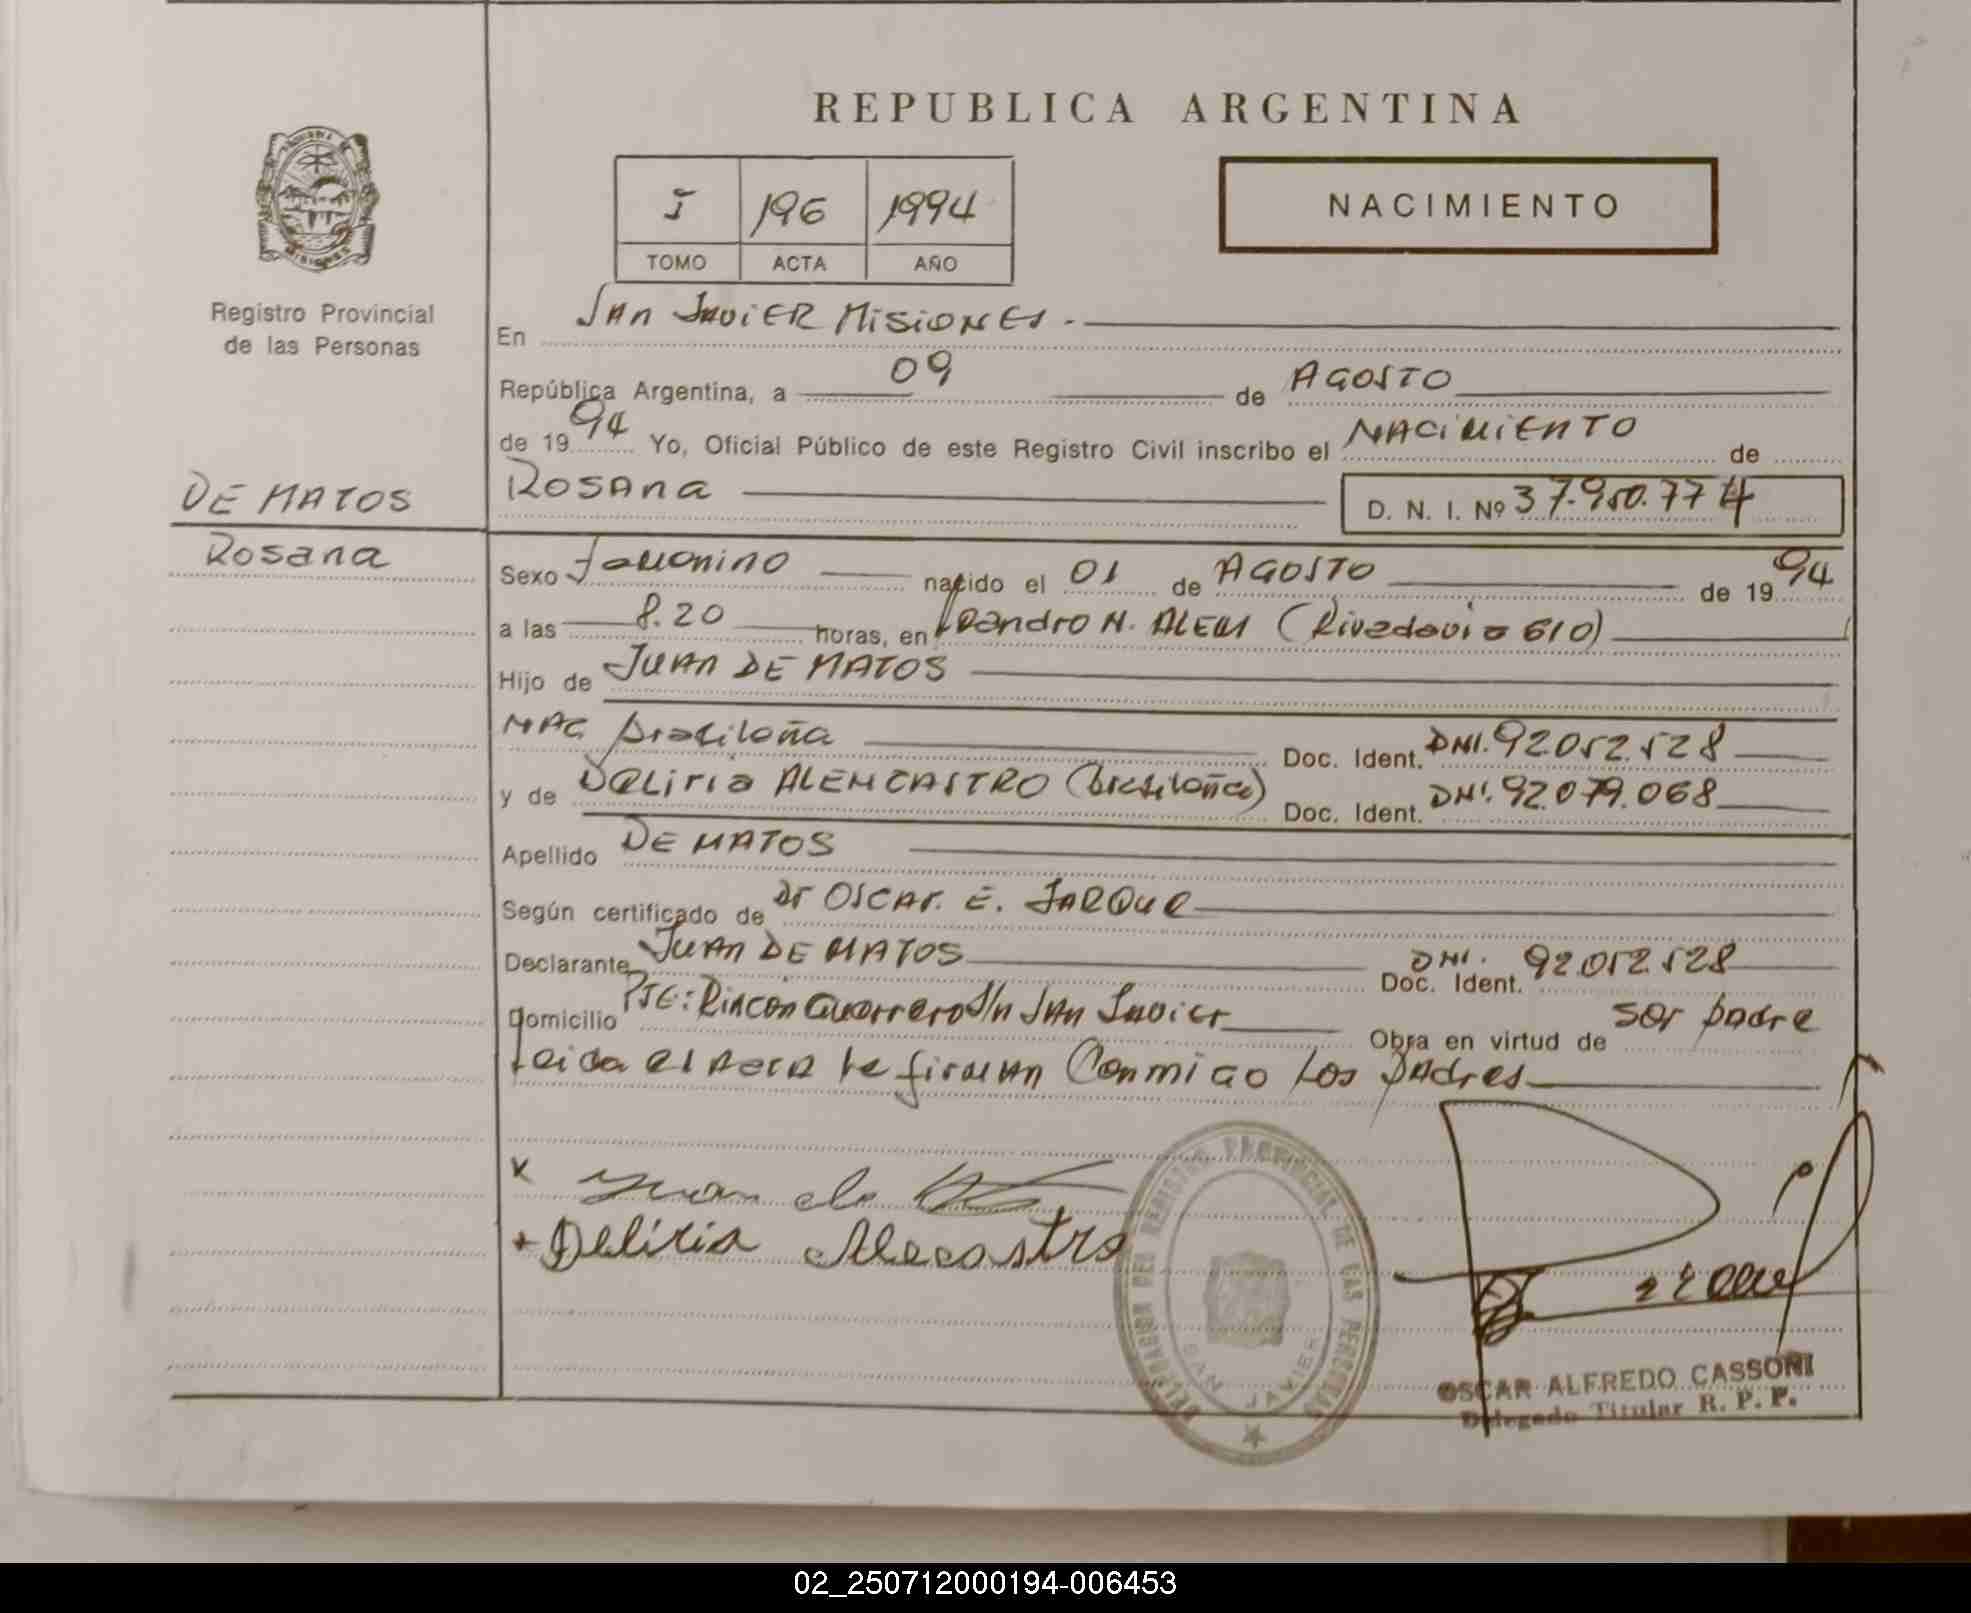 REPUBLICA ARGENTINA
I 196 1994
TOMO ACTA AÑO
NACIMIENTO
MISIONES
Registro Provincial
de las Personas
En SAn JAviER MisiONES.-
República Argentina, a 09 de AGOSTO
de 1994 Yo, Oficial Público de este Registro Civil inscribo el NACiMiENTO de
ROSAna D. N. I. Nº 37.950.774
DE MATOS
Rosana
Sexo femenino nacido el 01 de AGOSTO de 1994
a las 8.20 horas, en Leandro N. ALEM (Rivadavia 610)
Hijo de JUAn DE MATOS
NAC brasileña Doc. Ident. DNI. 92052.528
y de DeLiria ALENCASTRO (brasileña) Doc. Ident. DNI. 92.079.068
Apellido DE MATOS
Según certificado de Dr OSCAr. E. JARQUe
Declarante JUAn DE MATOS Doc. Ident. DNI. 92052.528
Domicilio PJE: Rincon Guerrero S/n SAn Javier Obra en virtud de ser padre
Leida el Acta la firman Conmigo Los padres
x Juan de
+ Deliria Alecastro
DELEGACION DEL REGISTRO PROVINCIAL DE LAS PERSONAS
SAN JAVIER
OSCAR ALFREDO CASSONI
Delegado Titular R. P. P.
02_250712000194-006453